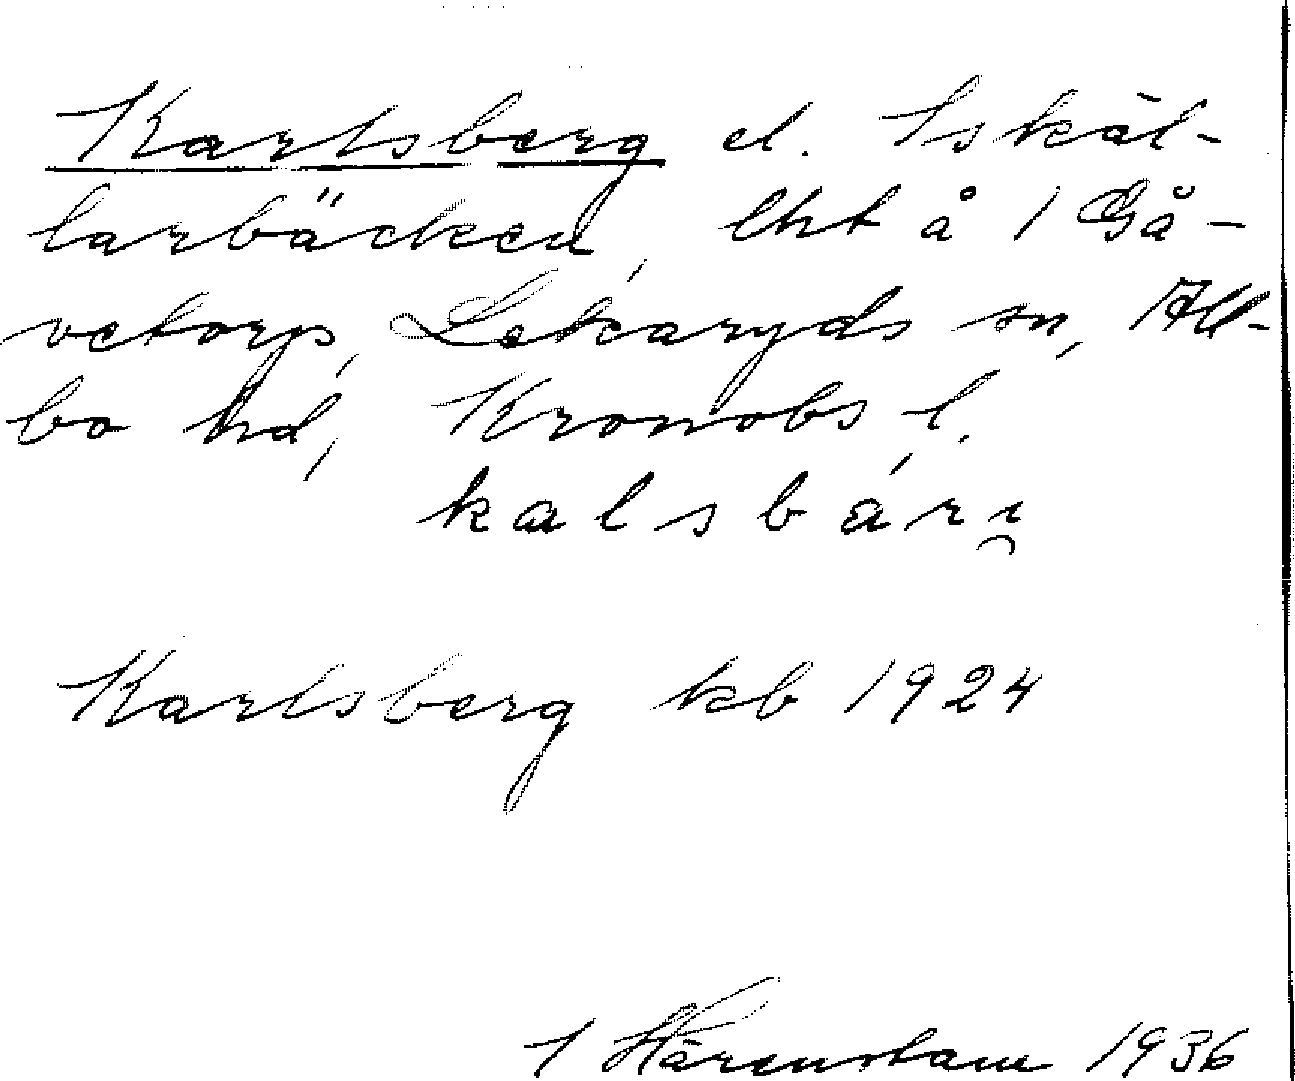 Karlsberg el. Iskäl-
larbäcken, lht å 1 Gå-
vetorp, Lekaryds sn, All-
bo hd, Kronobs l.
kalsbárι̯
Karlsberg kb 1924
I Härenstam 1936